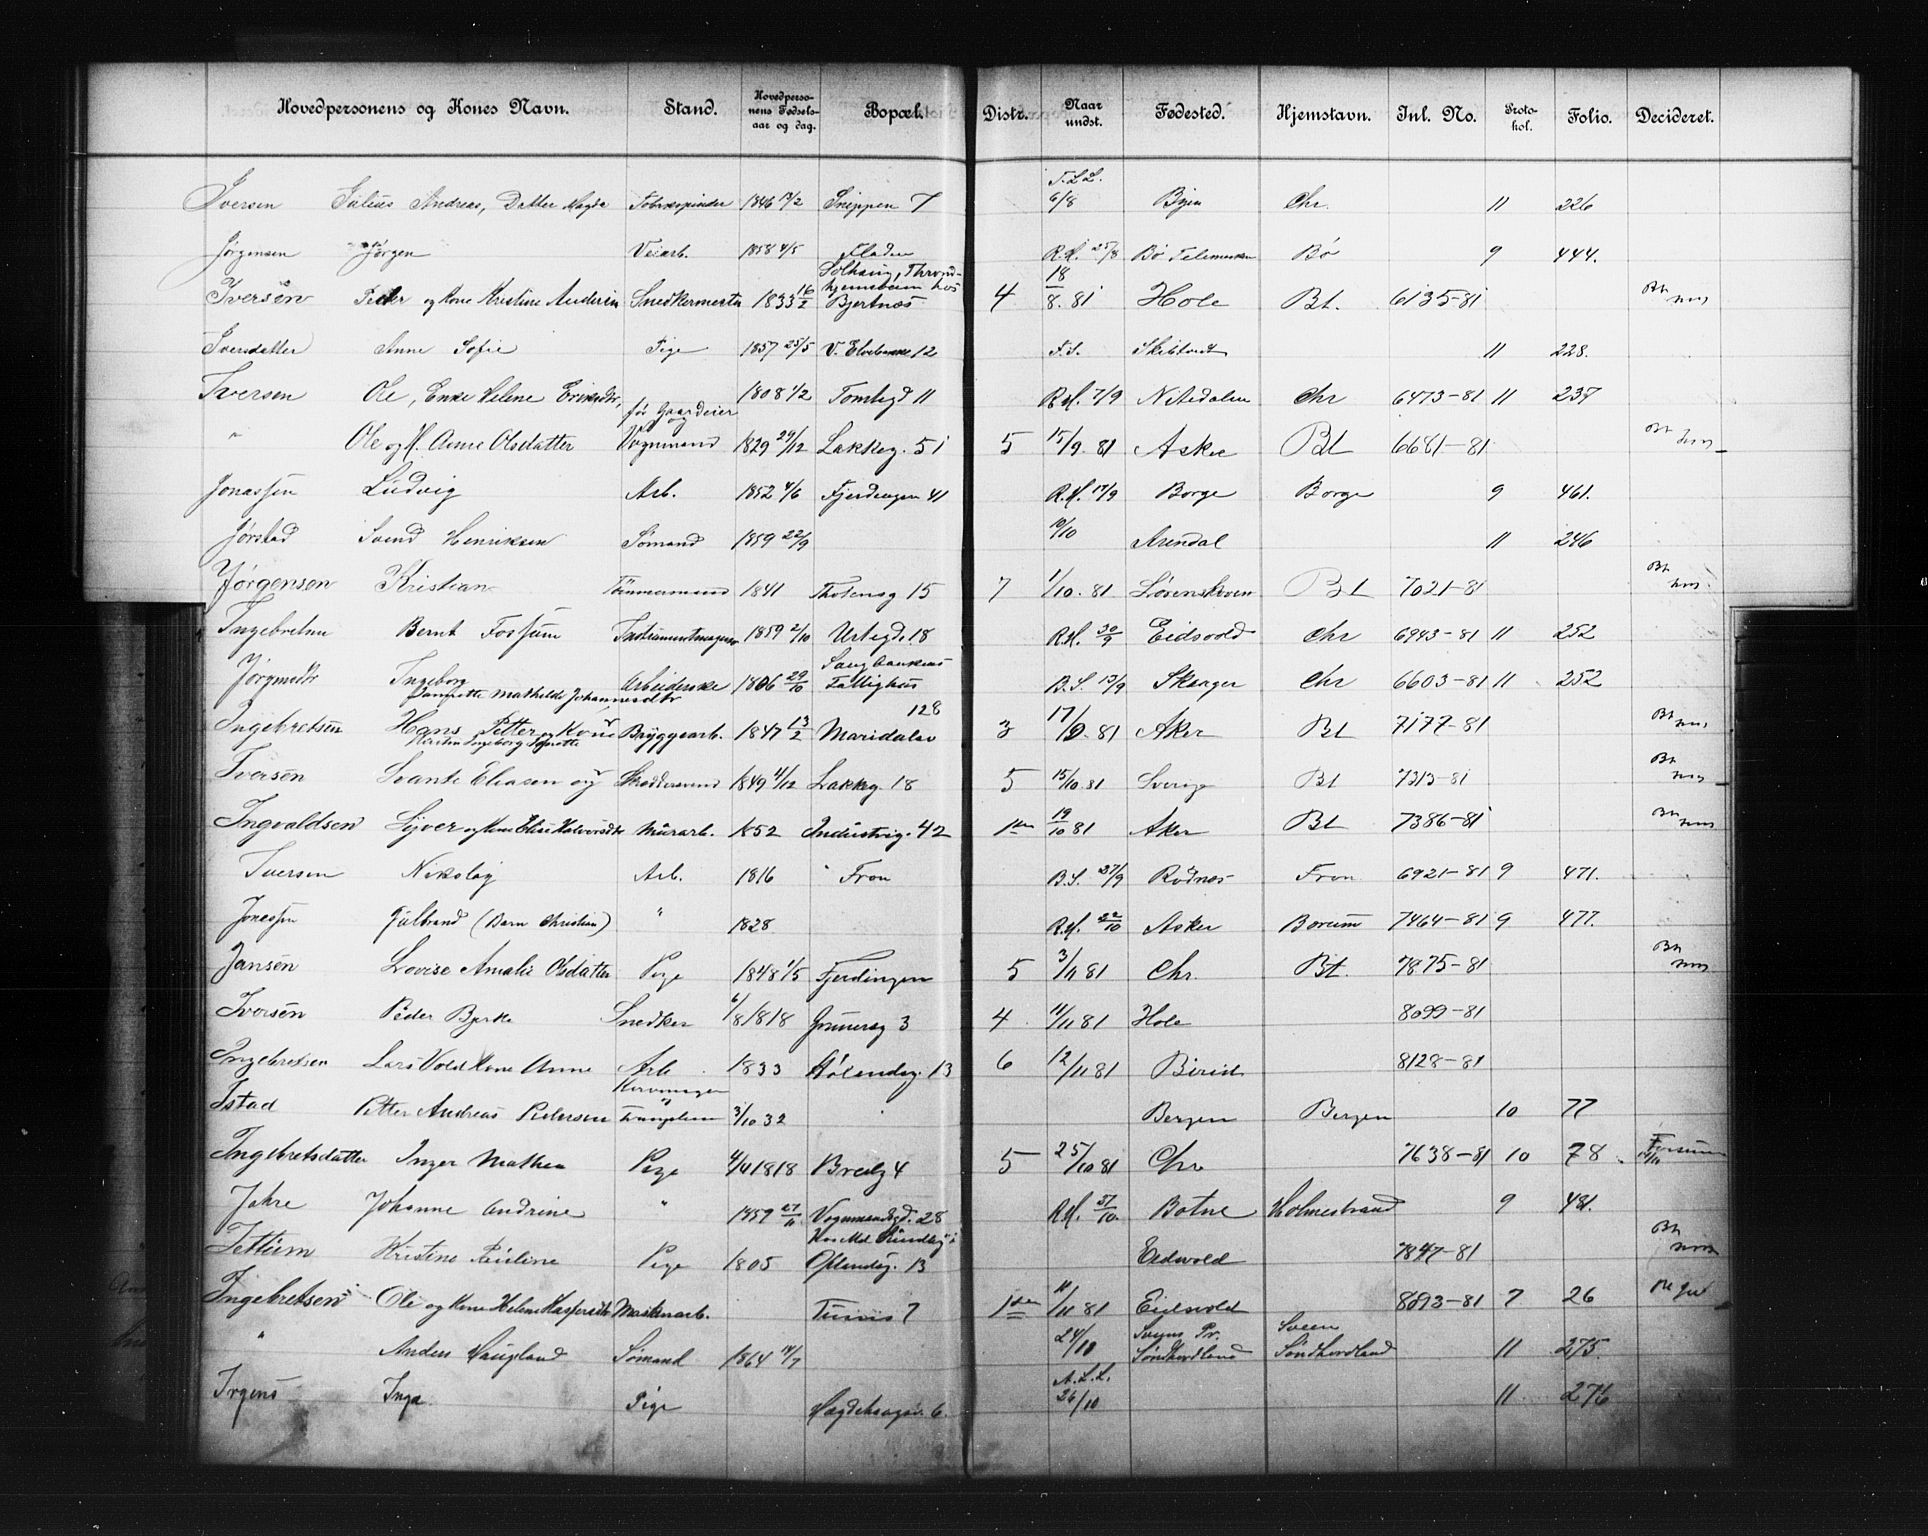 Hovedpersonens og Kones Navn. Stand. Hovedpersonens Fødselsaar og dag. Bopæl. Distr. Naar undst. Fødested. Hjemstavn. Inl. No. Protokol. Folio. Decideret.
Iversen Julius Andreas, Datter Magda 1846 Snippen 7 T.L.L. 6/8 Chr. 11 226
Jørgensen Jørgen Veiarb. 1858 4/5 Fladen R.H. 25/8 Bø Telemarken Bø 9 444.
Iversen Peder og Kone Kristine Andersen Snedkermester 1833 16/2 Solhaug, Throndhjemsveien hos Bjertnæs 4 18/8. 81 Hole Bt. 6135-81
Iversdatter Anne Sofie Pige 1857 25/5 V. Elvebakke 12 F.S. 11 228.
Iversen Ole, Enke Helene Eriksdtr, 1808 1/2 Tomtegd 11 R.H. 7/9 Nitedalen Chr 6473-81 11 237
" Ole og H. Anne Olsdatter før Gaardeier og Vognmand 1829 29/12 Lakkeg. 51 5 15/9. 81 Asker Bt 6681-81
Jonassen Ludvig Arb. 1852 4/6 Fjerdingen 41 R.H. 17/9 Borge Borge 9 461.
Jørstad Svend Henriksen Sømand 1859 22/9 10/10 Arendal 11 246
Jørgensen Kristian Tømmermand 1841 Thotensg 15 7 1/10. 81 Sørenskoven Bt 7021-81
Ingebretsen Bernt Fossum Instrumentmager 1859 2/10 Urtegd. 18 R.H. 30/9 Eidsvold Chr 6943-81 11 252
Jørgensdtr Ingeborg Arbeiderske 1806 29/10 Fattighus B.S. 13/9 Skanger Chr 6603-81 11 252
Mathilde Johannesdtr
Ingebretsen Hans Petter og Kone Bryggearb. 1847 13/2 Maridalsv 128 3 17/9. 81 Aker Bt 7177-81
Iversen Svante Eliasen og 1849 4/12 Lakkeg. 18 5 15/10.81 Sverige Bt 7313-81
Ingvaldsen Sjver og Kone Elise Halvorsdtr Murarb. 1852 Industrig. 42 1ste 19/10 81 Aker Bt 7386-81
Iversen Nikolai Arb. 1816 " Fron B.S. 27/9 Rødnes Fron 6921-81 9 471.
Jonassen Gulbrand (Barn Christian) " 1828 R.H. 22/10 Asker Bærum 7464-81 9 477.
Jansen Lovise Amalie Olsdatter Pige 1848 1/5 Fjerdingen 5 3/11 81 Chr. Bt. 7875-81
Iversen Peder Bjerke Snedker 6/8 1818 Grunersg 3 4 11/11 81 Hole 8099-81
Ingebretsen Lars Vold Kone Anne Arb. 1833 Hølandsg. 13 6 12/11 81 Birid 8128-81
Istad Petter Andreas Pedersen Kurvmager 3/10 32 Bergen Bergen 10 77
Ingebretsdatter Inger Mathea Pige 4/11 1818 Bredg 4 5 25/10 81 Chr 7638-81 10 78
Jahre Johanne Andrine " 1859 27/11 Vognmandsgd. 28 R.H. 27/10. Botne Holmestrand 9 481.
Jettum Kristine Pauline Pige 1805 Oplandsg. 13 Eidsvold 7847-81
Ingebretsen Ole og Kone Helene Kaspersdtr Maskinarb. 7 1ste 11/11 81 Eidsvold 8093-81 7 26
" Anders Haugland Sømand 1864 14/7 24/10 Sveens Pr. Søndhordland Sveen Søndhordland 11 275.
Irgens Inga Pige 6. A.L.L. 26/10 11 276